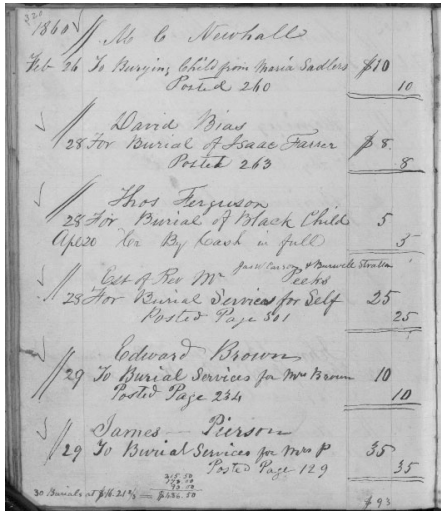 320
1860 M C Newhall
Feb 26 To Burying Child from Maria Sadlers $10
Posted 260 10
David Bias
28 For Burial of Isaac Farrer $8
Posted 263 8
Thos Ferguson
28 For Burial of Black Child 5
Apl 20 Cr By Cash in full 5
& Burwell Stratton
Est of Rev Mr Peeks
28 For Burial Services for Self 25
Posted Page 501 25
Edward Brown
29 To Burial Services for Mrs Brown 10
Posted Page 234 10
James Pierson
29 To Burial Services for Mrs P 35
Posted Page 129 35
30 Burials at $16.21 2/3 = $486.50
$93